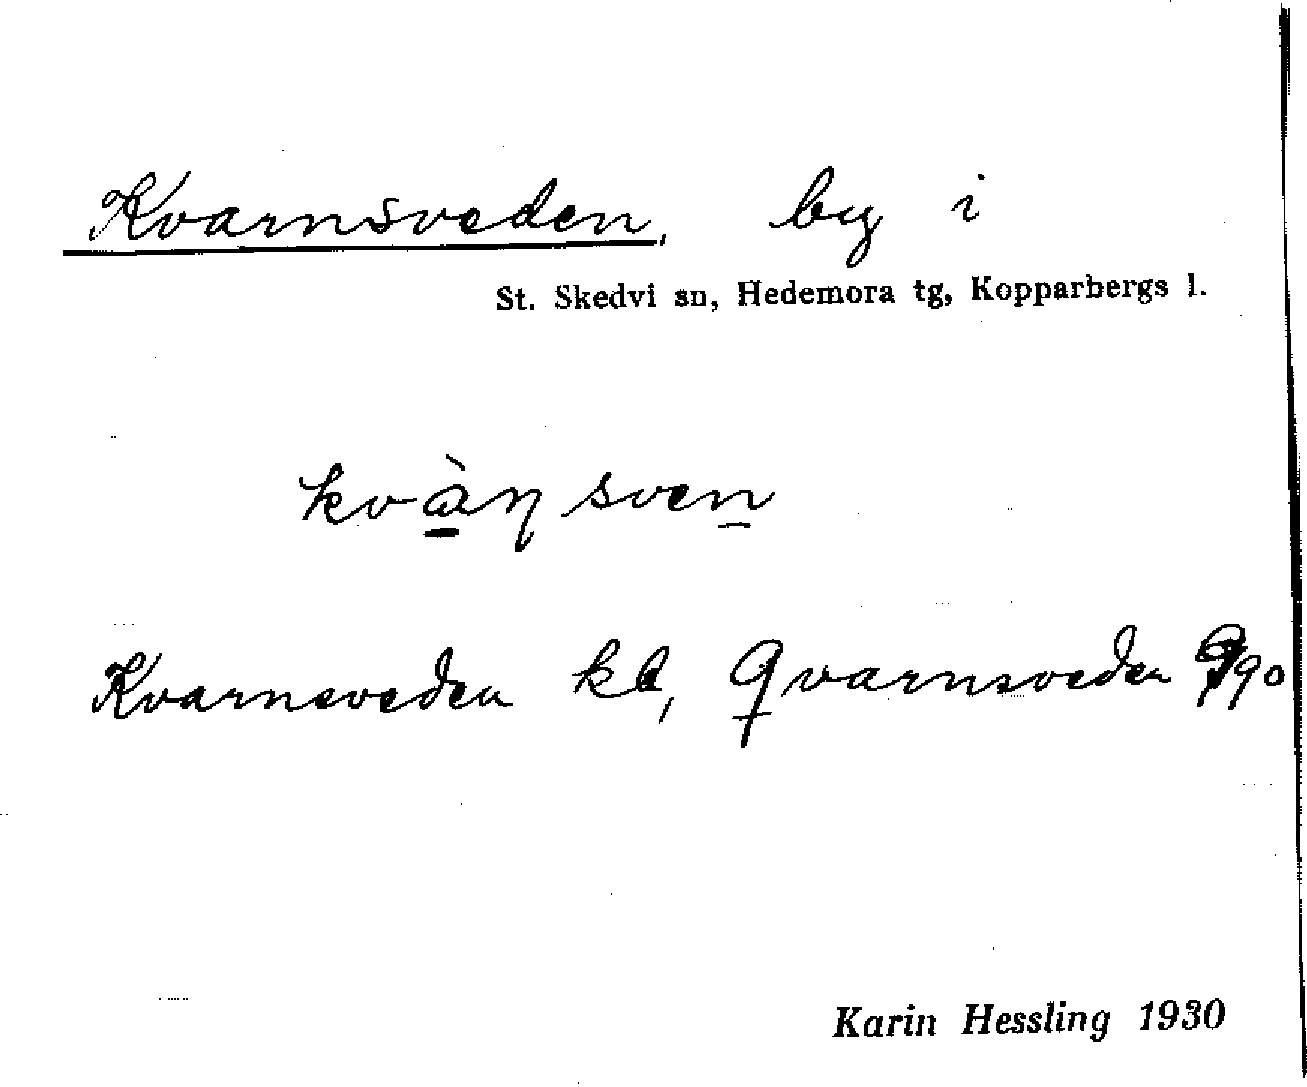 Kvarnsveden, by i
St. Skedvi sn, Hedemora tg, Kopparbergs l.
kvàη sven
Kvarnsveden kb, Qvarnsveden 90
Karin Hessling 1930